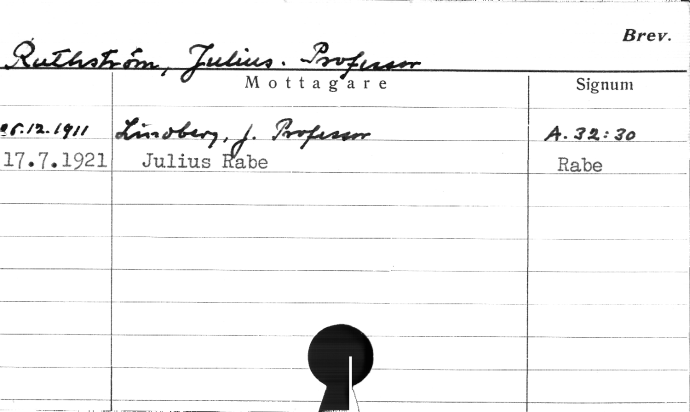 Brev.
Ruthström, Julius. Professor
Mottagare Signum
12.1911 Lindberg, J. Professor A. 32:30
17.7.1921 Julius Rabe Rabe